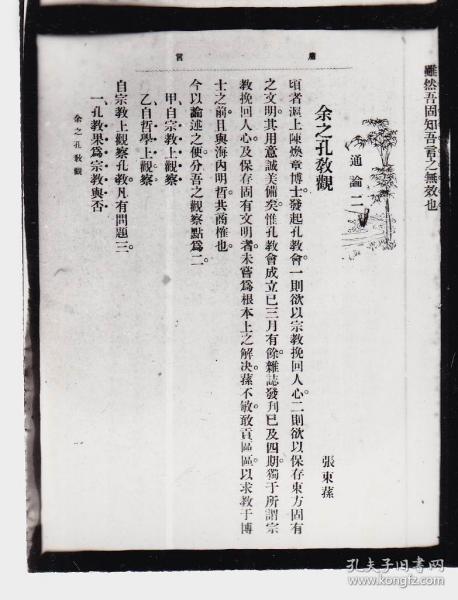 雖然吾固知吾言之無效也
庸言
通論二
余之孔教觀
張東蓀
頃者滬上陳煥章博士發起孔教會一則欲以宗教挽回人心二則欲以保存東方固有
之文明其用意誠美備矣惟孔教會成立已三月有餘雜誌發刋已及四期獨于所謂宗
教挽回人心及保存固有文明者未嘗爲根本上之解决蓀不敏敢貢區區以求教于博
士之前且與海內明哲共商榷也
今以論述之便分吾之觀察點爲二
甲自宗教上觀察
乙自哲學上觀察
自宗教上觀察孔教凡有問題三
一、孔教果爲宗教與否
余之孔教觀
孔夫子旧书网
www.kongfz.com